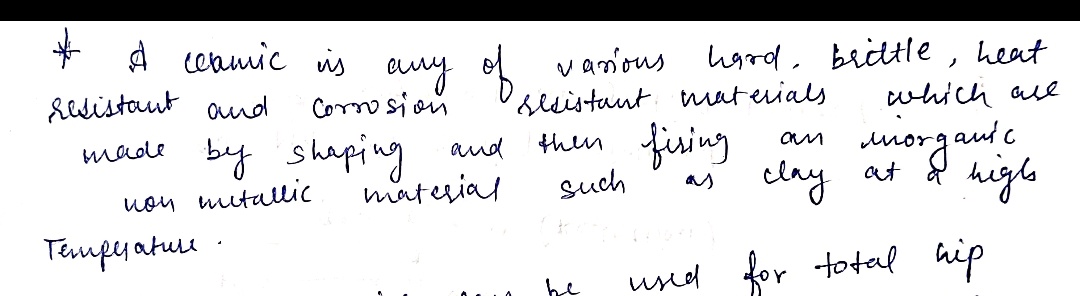 * A ceramic is any of various hard, brittle, heat
resistant and corrosion resistant materials which are
made by shaping and then firing an inorganic
non metallic material such as clay at a high
Temperature.
be used for total hip